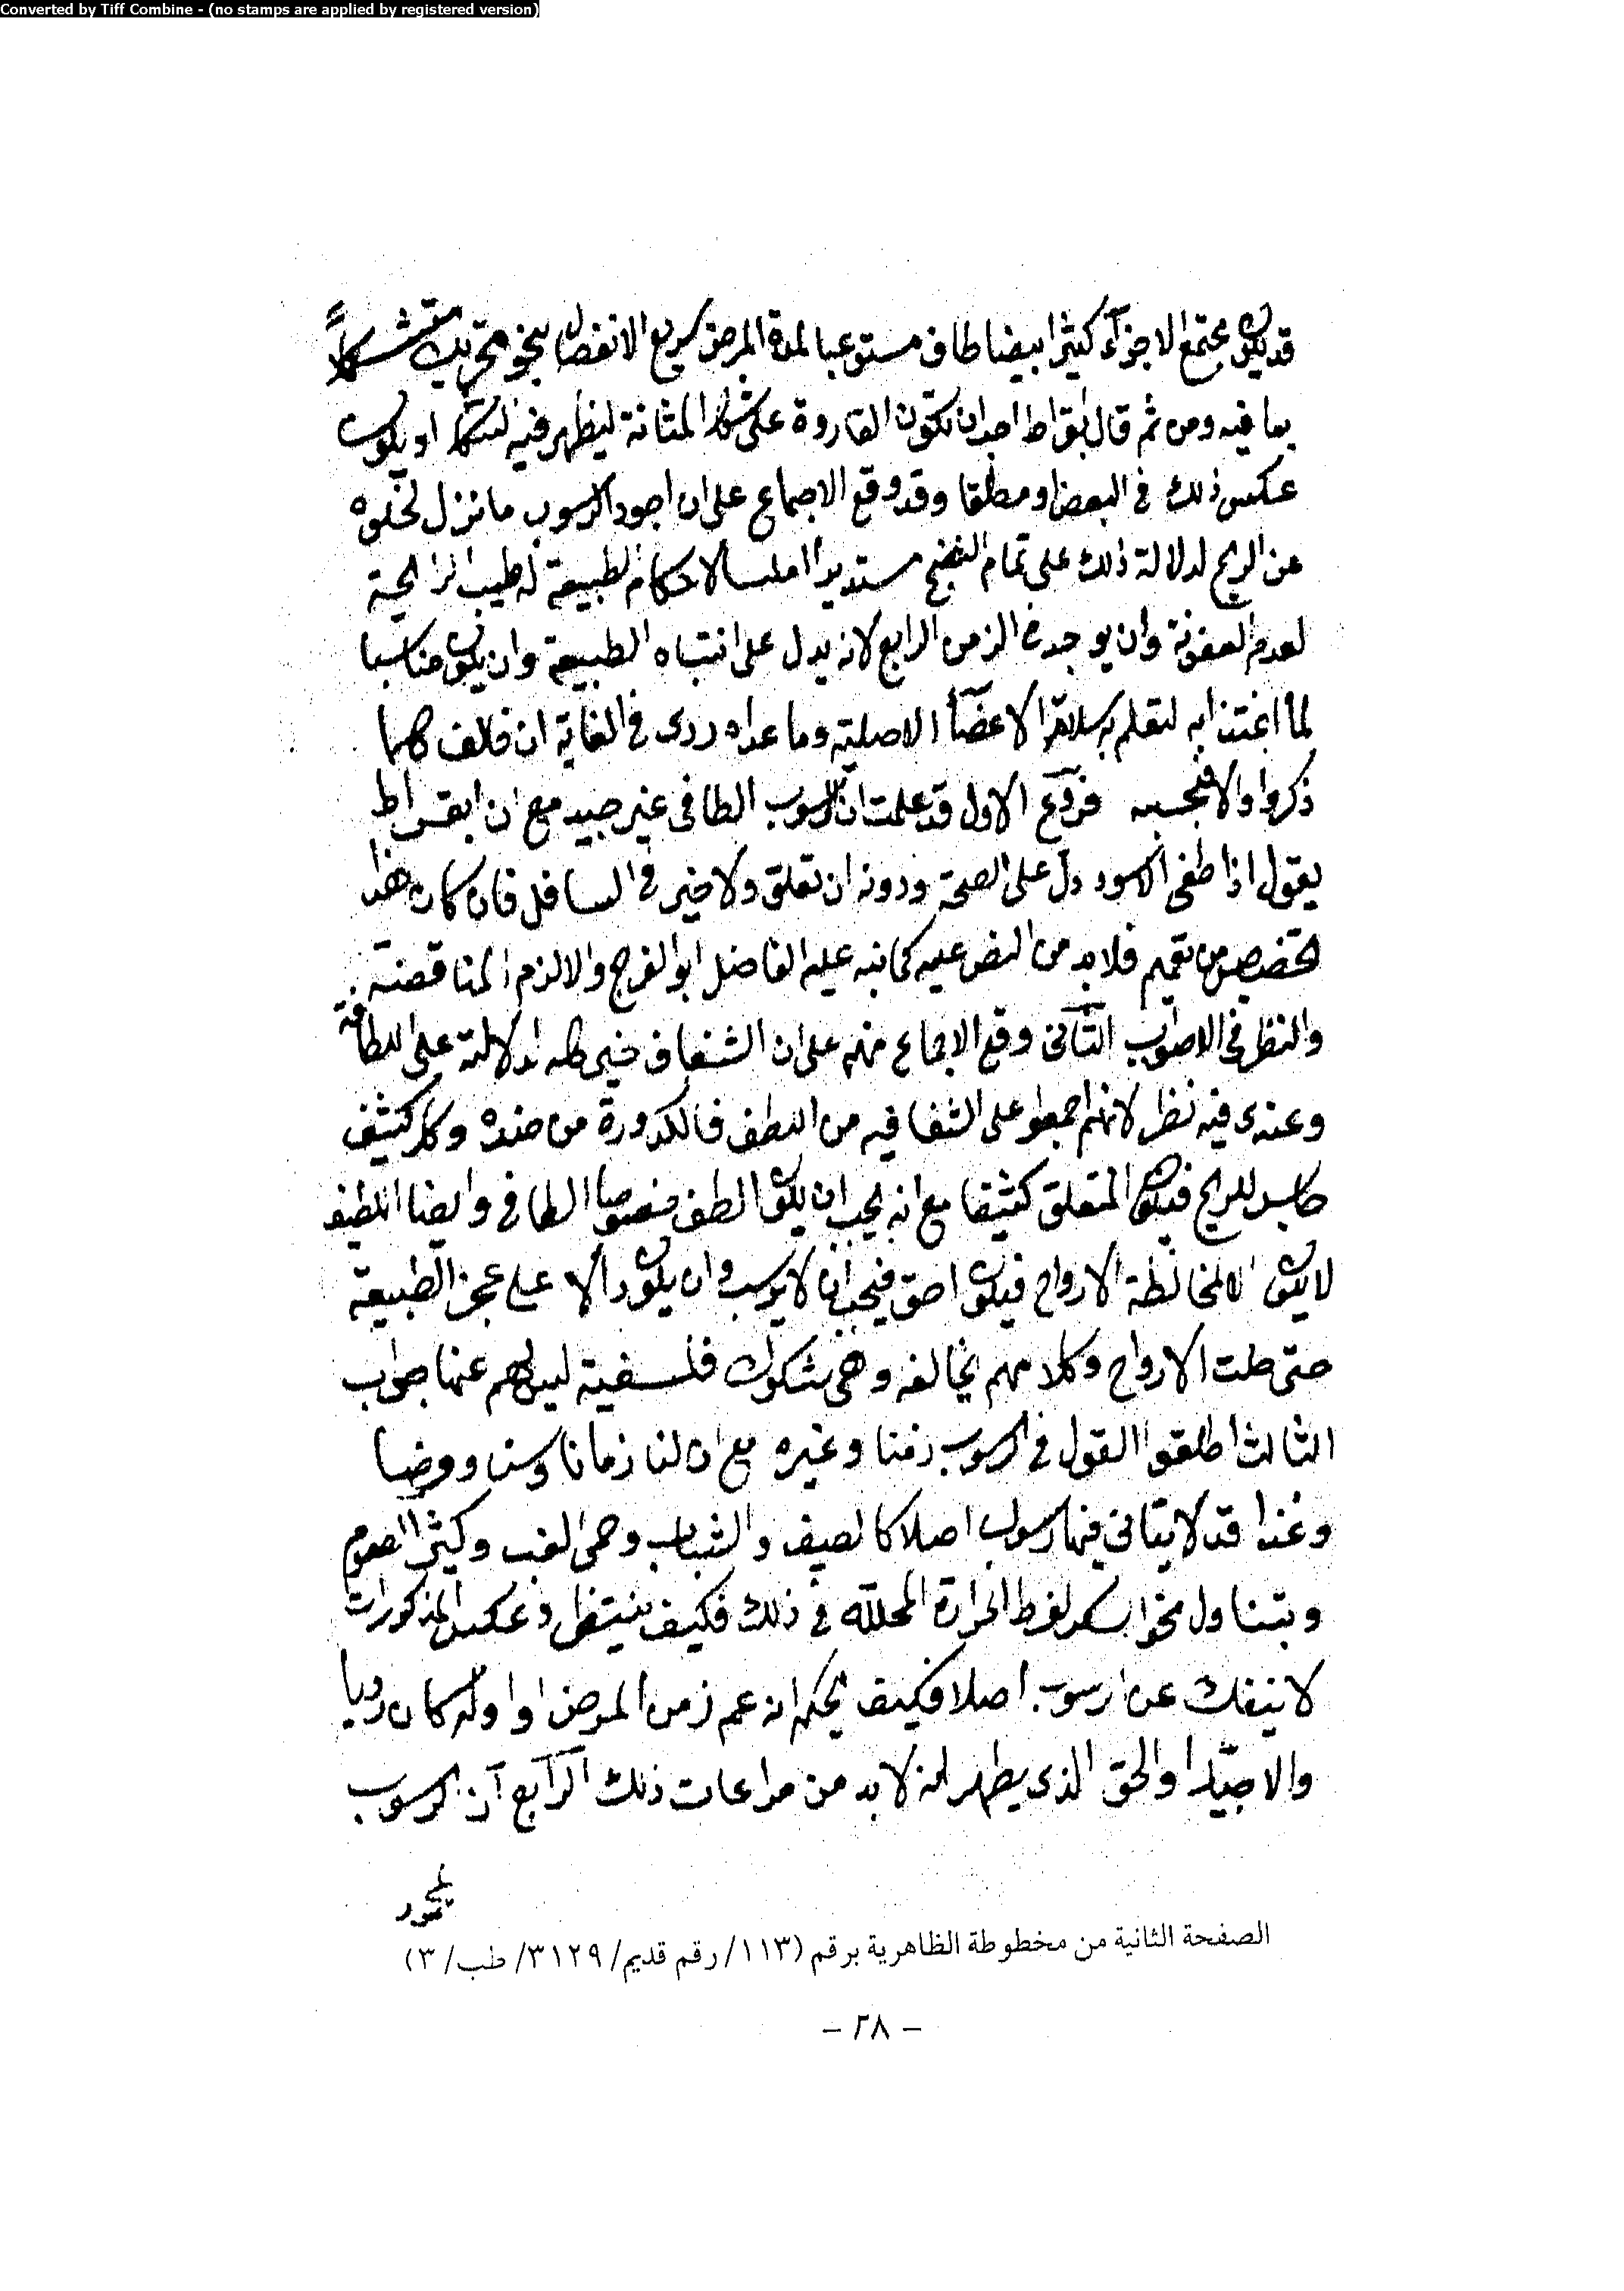 Converted by Tiff Combine - (no stamps are applied by registered version)
قد يكون مجتمع الاجزآء كثيرا ابيضا طاف مستوعبا لمدة المرض سريع الانفصال بنحو تحريك متشكلاً
بما فيه ومن ثم قال بقراط احب ان تكون القارورة على شكل المثانة ليظهر فيه الشكل او يكون
عكس ذلك في البعض او مطلقا وقد وقع الاجماع على ان اجود الرسوب ما نزل لخلوه
عن الريح لدلالة ذلك على تمام النضج مستديرا املسا لاحكام الطبيعة له طيب الرائحة
لعدم العفونة وان يوجد في الزمن الرابع لانه يدل على انتباه الطبيعة وان يكون مناسبا
لما اغتذا به لتعلم به سلامة الاعضآء الاصلية وما عداه ردى في الغاية ان خالف كلما
ذكروا والا فبحسبه فروع الاول قد علمت ان الرسوب الطافى غير جيد مع ان ابقراط
يقول اذا طفى الاسود دل على الصحة ودونه ان تعلق ولا خير في السافل فان كان هذا
تخصيص من تعميم فلا بد من النص عليه كما نبه عليه الفاضل ابو الفرج والا لزم المناقضة
والنظر في الاصوب الثانى وقع الاجماع منهم على ان الشفاف خير كله لدلالته على اللطافة
وعندى فيه نظر لانهم اجمعوا على الشفافيه من اللطف فالكدورة من ضده وكل كثيف
حابس للريح فيكون المتعلق كثيفا مع انه يجب ان يكون الطف خصوصا الطافى وايضا اللطيف
لا يكون الا لمخالطة الارواح فيكون احق فيجب ان لا يرسب وان يكون دالا على عجز الطبيعة
حتى حلت الارواح وكلامهم يخالفه وهى شكوك فلسفية ليس لهم عنها جواب
الثالث اطلقوا القول في الرسوب زمنا وغيره مع ان لنا زمانا وسنا ومرضا
وغذا قد لا يتاتى فيها رسوب اصلا كالصيف والشباب وحمى الغب وكثير الصوم
وبتناول نحو السكر لفرط الحرارة المحللة في ذلك فكيف ينتظر وعكس المذكورات
لا ينفك عن ارسوب اصلا فكيف يحكم انه عم زمن المرض او اوله كان رديا
والا جيدا والحق الذى يظهر انه لا بد من مراعات ذلك الرابع ان الرسوب
الصفحة الثانية من مخطوطة الظاهرية برقم (١١٣/ رقم قديم/ ٣١٢٩/ طب/ ٣)
– ٢٨ –